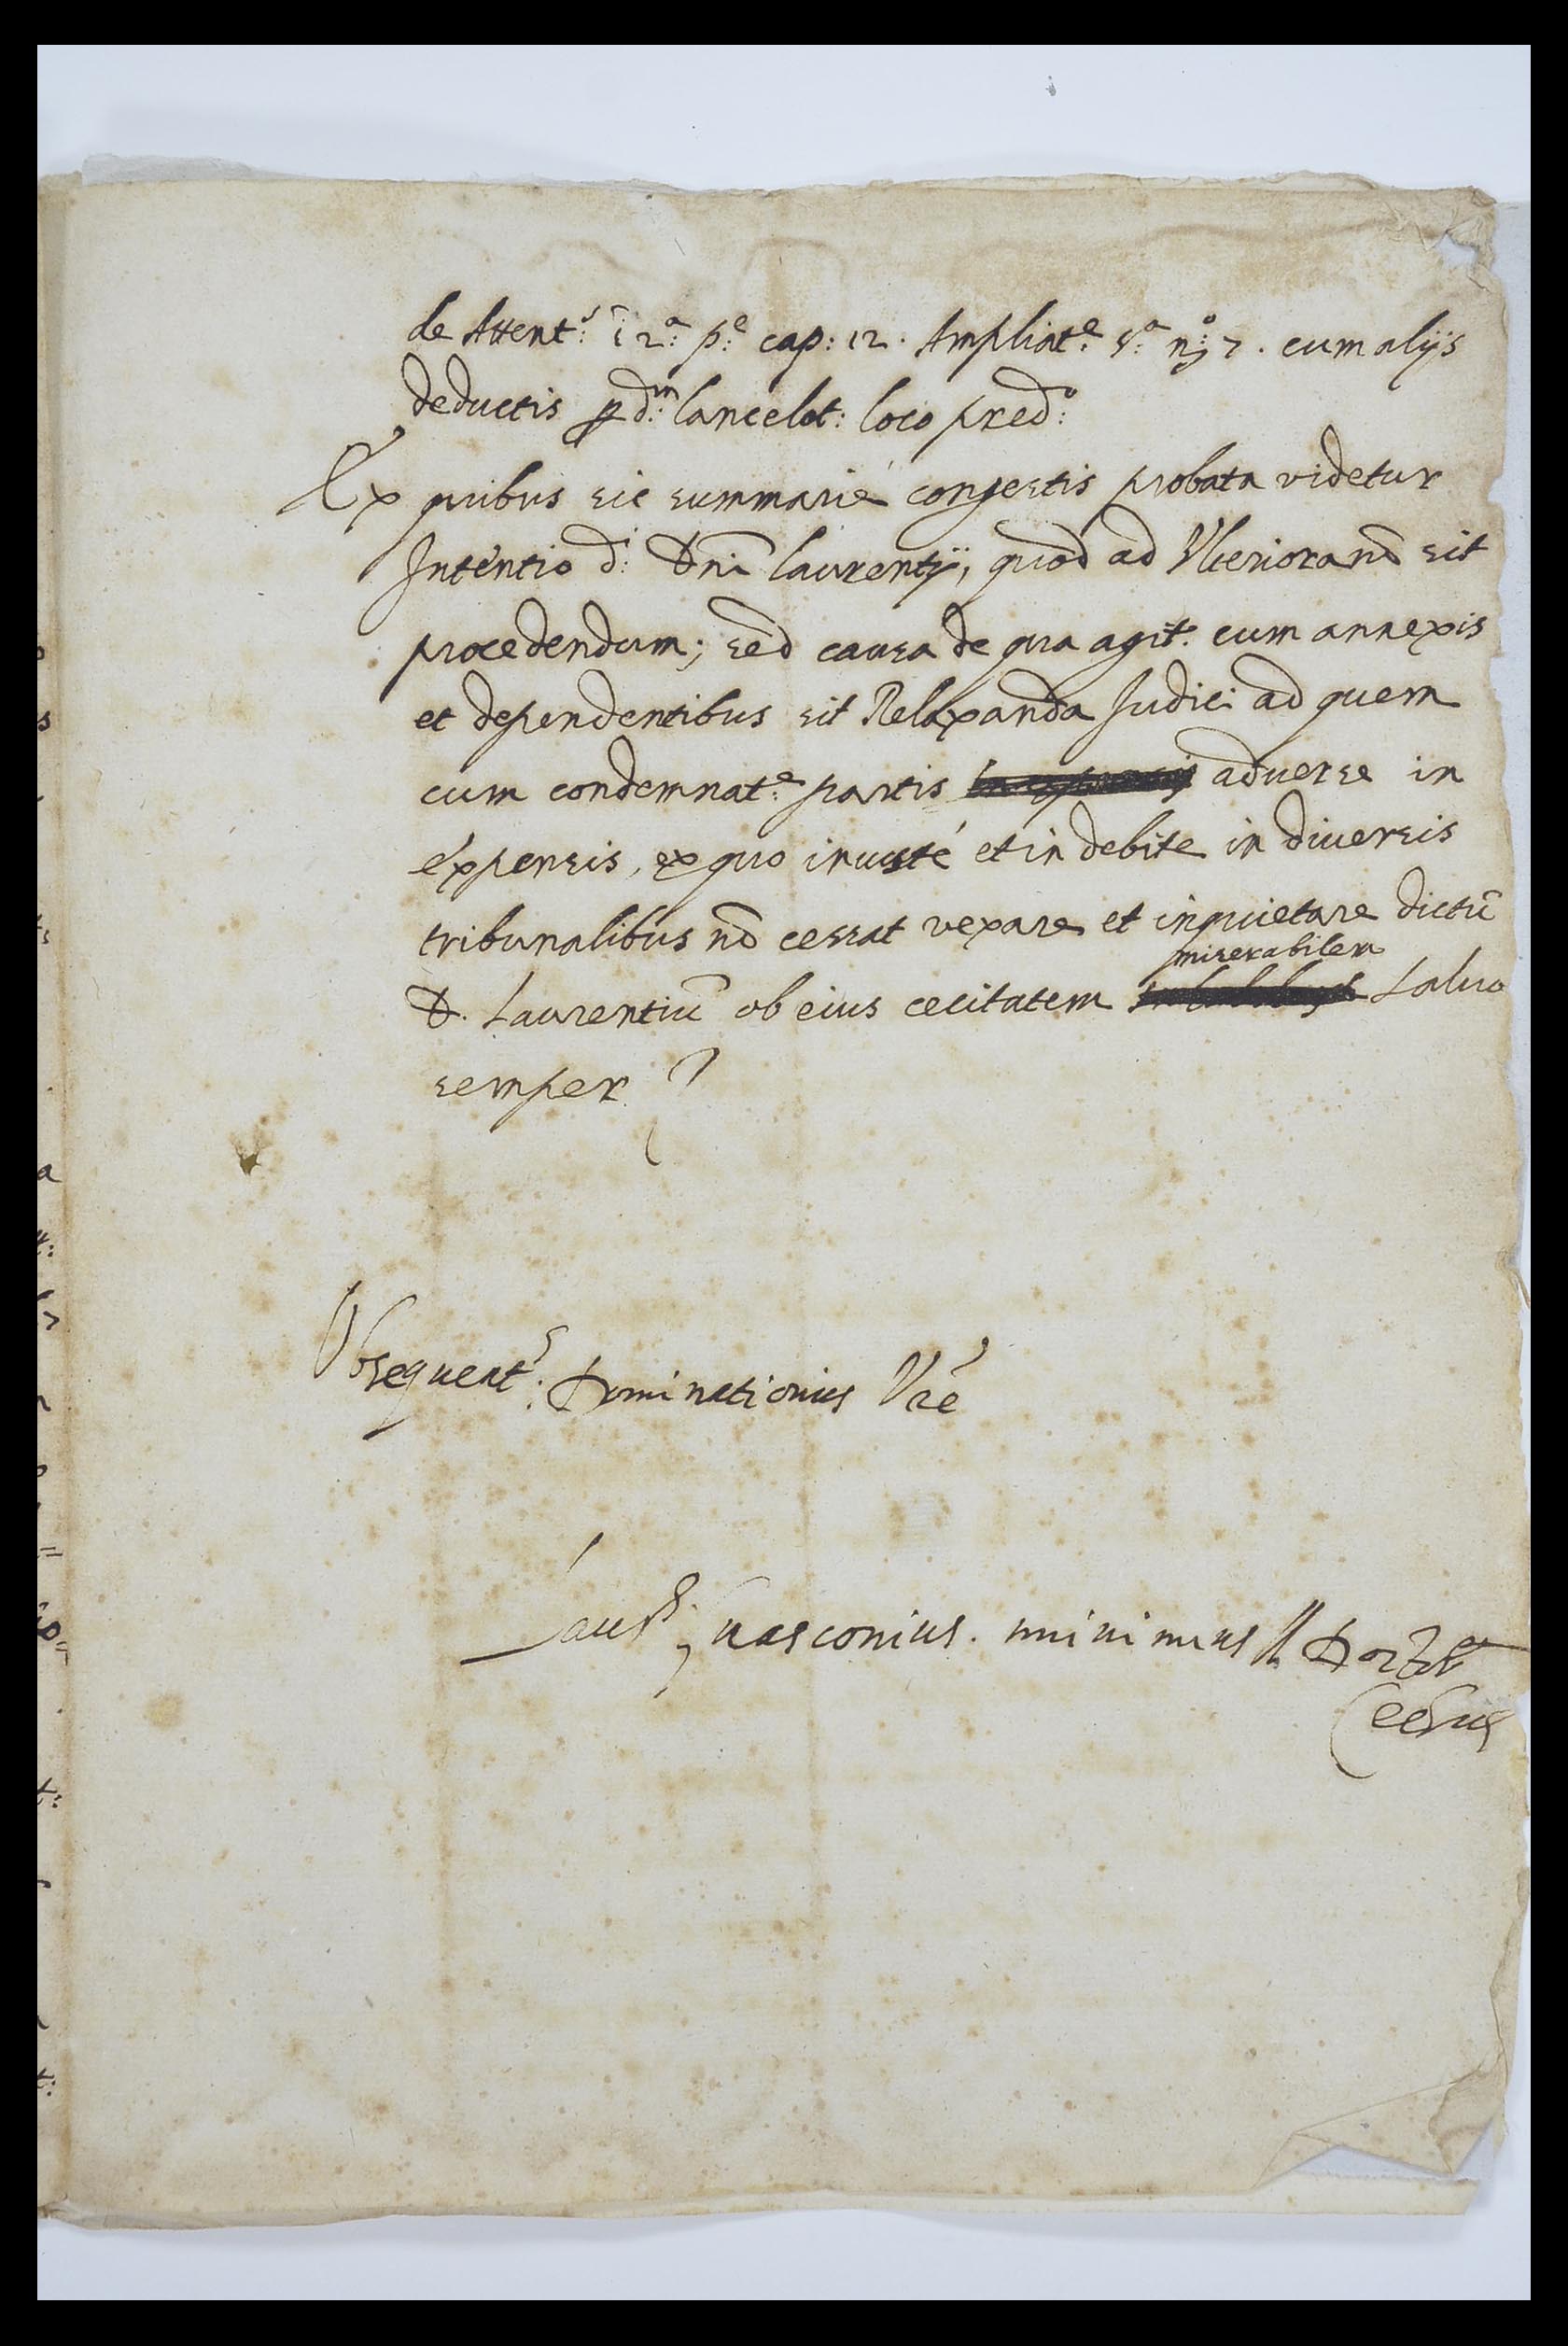 de Attent:s ī 2:a p:e cap: 12. Ampliat:e 5:a n:o 7. cum alijs
deductis p d:m lancelot: loco pred:o
Ex quibus sic summariè congestis probata videtur
Intentio d: Dnī laurentij, quod ad Vlteriora nō sit
procedendum; sed causa de qua agit: cum annexis
et dependentibus sit Relaxanda Judici ad quem
cum condemnat:e partis aduerse in
expensis, ex quo iniustè et indebite in diuersis
tribunalibus nō cessat vexare et inquietare dictū
miserabilem
D. Laurentiū ob eius cecitatem Saluo
semper
Obsequent:s Dominationis Vrē
nasconius. minimus